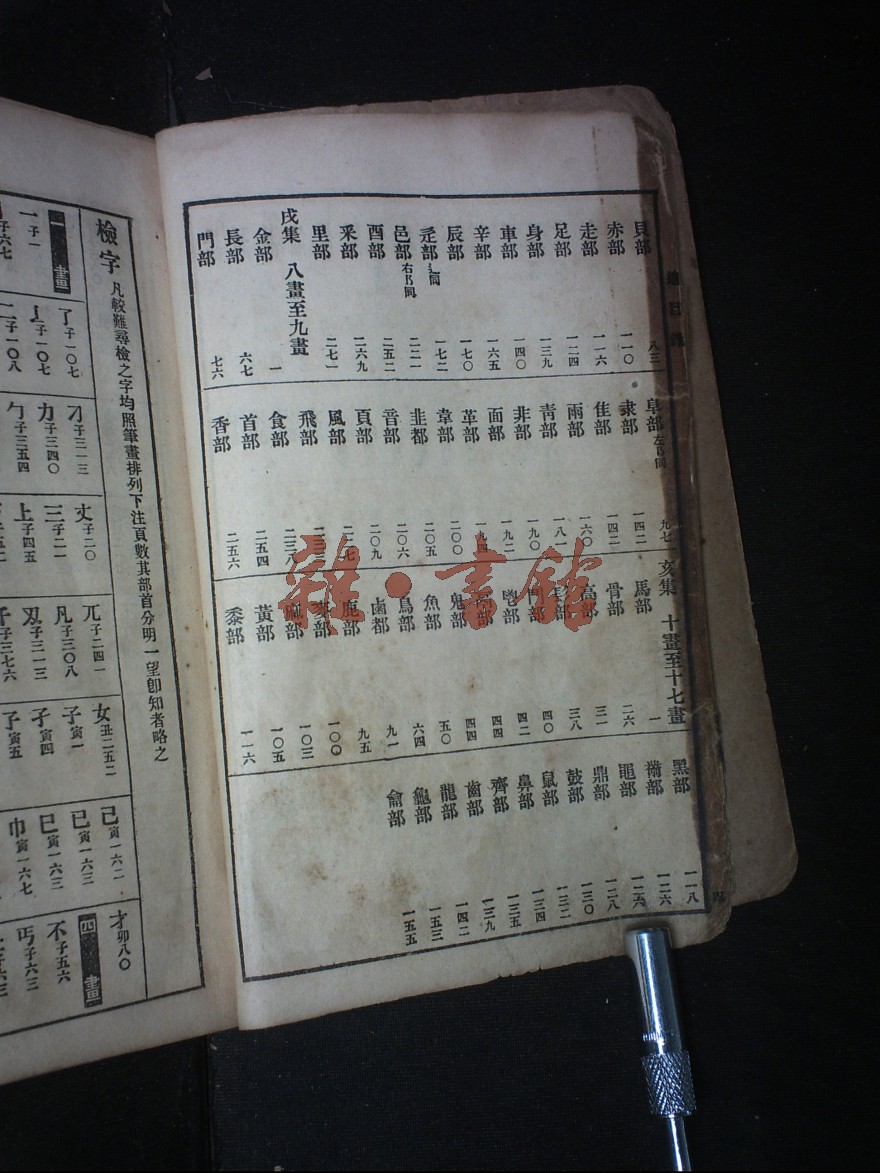 總目錄
貝部 八三
赤部 一一〇
走部 一一六
足部 一二四
身部 一三九
車部 一四〇
辛部 一六五
辰部 一七〇
辵部 辶同 一七二
邑部 右阝同 二二一
酉部 二五二
釆部 二六九
里部 二七一
戌集 八畫至九畫
金部 一
長部 六七
門部 七六
阜部 左阝同 九七
隶部 一四二
隹部 一四二
雨部 一六〇
靑部 一八一
非部 一九〇
面部 一九二
革部 一九四
韋部 二〇〇
韭都 二〇五
音部 二〇六
頁部 二〇九
風部 二二七
飛部
食部 二三八
首部 二五四
香部 二五六
亥集 十畫至十七畫
馬部 一
骨部 二六
高部 三一
髟部 三八
鬥部 四〇
鬯部 四二
鬲部 四四
鬼部 四四
魚部 五〇
鳥部 六四
鹵都 九一
鹿部 九五
麥部 一〇〇
麻部 一〇三
黃部 一〇五
黍部 一一六
黑部 一一八
黹部 一二六
黽部 一二六
鼎部 一二八
鼓部 一三〇
鼠部 一三二
鼻部 一三四
齊部 一三五
齒部 一三九
龍部 一四二
龜部 一五三
龠部 一五五
四
雜·書館
檢字 凡較難尋檢之字均照筆畫排列下注頁數其部首分明一望卽知者略之
一畫
一 子一
了 子一〇七
亅 子一〇七
二 子一〇八
刁 子三一三
力 子三四〇
勹 子三五四
丈 子二〇
三 子二一
上 子四五
兀 子二四一
凡 子三〇八
刄 子三一三
千 子三七六
女 丑二五二
子 寅一
孑 寅四
孒 寅五
己 寅一六二
已 寅一六三
巳 寅一六三
巾 寅一六七
才 卯八〇
四畫
不 子五六
丐 子六三